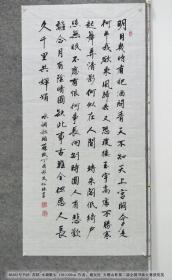 明月幾時有把酒問青天不知天上宮闕今夕是
何年我欲乘風歸去又恐瓊樓玉宇高處不勝寒
起舞弄清影何似在人間轉朱閣低綺戶
照無眠不應有恨何事長向別時圓人有悲歡
離合月有陰晴圓缺此事古難全但願人長
久千里共嬋娟
水調歌頭蘇軾